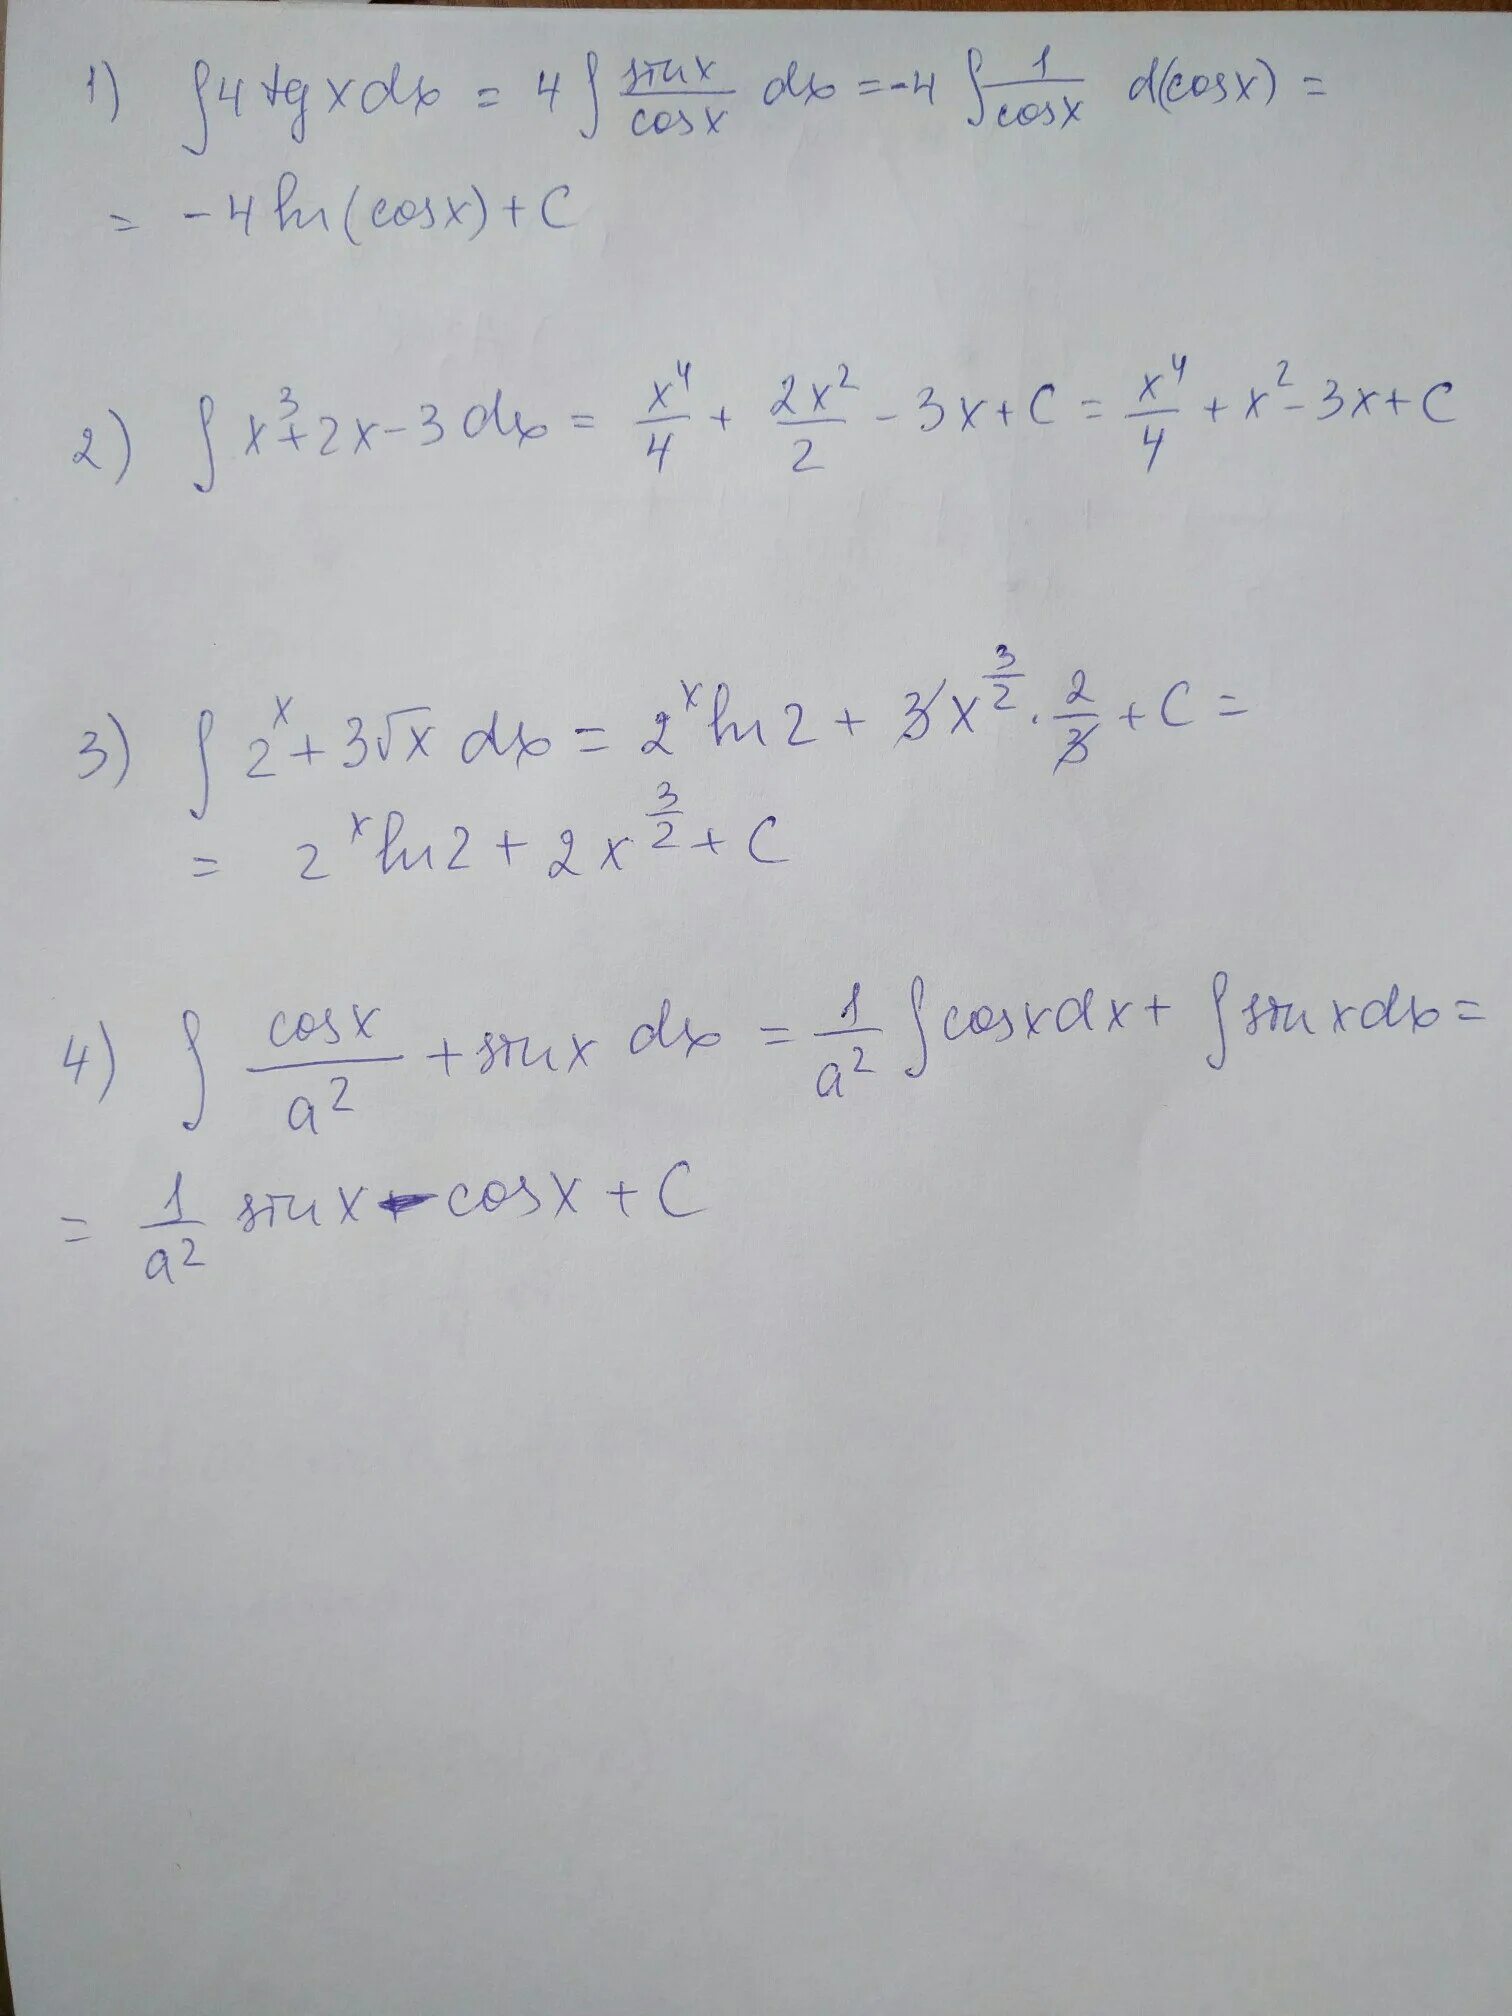 1) ∫4 tg x dx = 4 ∫ sin x / cos x dx = -4 ∫ 1 / cos x d(cos x) =
= -4 ln(cos x) + C
2) ∫ x³ + 2x - 3 dx = x⁴/4 + 2x²/2 - 3x + C = x⁴/4 + x² - 3x + C
3) ∫ 2^x + 3√x dx = 2^x ln 2 + 3x^(3/2) · 2/3 + C =
= 2^x ln 2 + 2x^(3/2) + C
4) ∫ cos x / a² + sin x dx = 1/a² ∫ cos x dx + ∫ sin x dx =
= 1/a² sin x - cos x + C